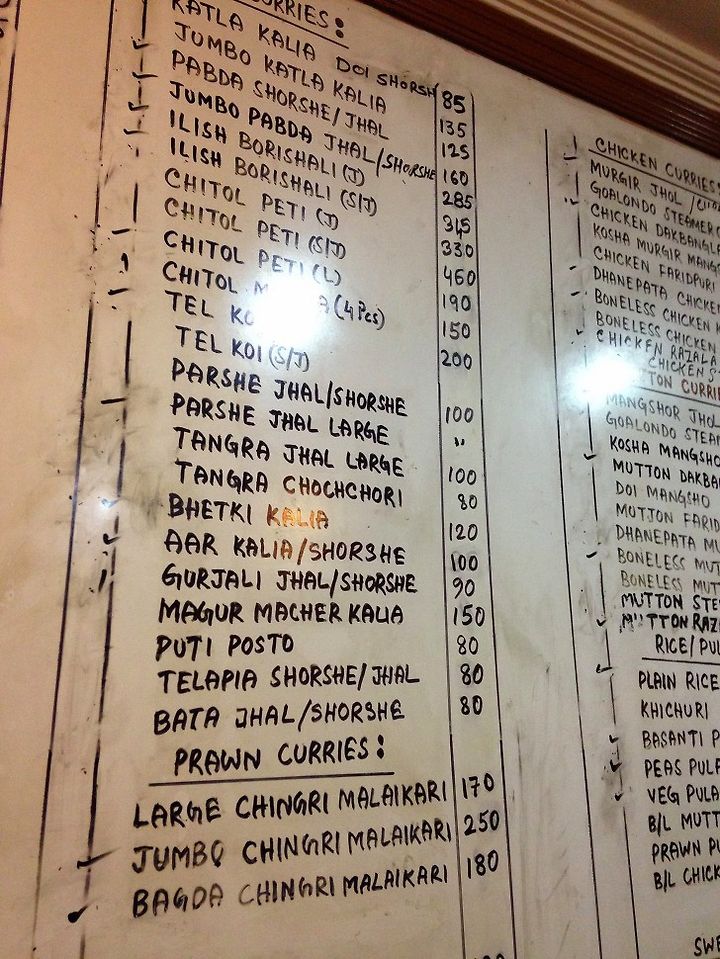 CURRIES:
KATLA KALIA DOI SHORSH 85
JUMBO KATLA KALIA 135
PABDA SHORSHE/JHAL 125
JUMBO PABDA JHAL/SHORSHE 160
ILISH BORISHALI (J) 285
ILISH BORISHALI (S/J) 345
CHITOL PETI (J)
CHITOL PETI (S/J) 330
CHITOL PETI (L) 460
CHITOL (4 Pcs) 190
TEL 150
TEL KOI (S/J) 200
PARSHE JHAL/SHORSHE 100
PARSHE JHAL LARGE "
TANGRA JHAL LARGE 100
TANGRA CHOCHCHORI 80
BHETKI KALIA 120
AAR KALIA/SHORSHE 100
GURJALI JHAL/SHORSHE 90
MAGUR MACHER KALIA 150
PUTI POSTO 80
TELAPIA SHORSHE/JHAL 80
BATA JHAL/SHORSHE 80
PRAWN CURRIES:
LARGE CHINGRI MALAIKARI 170
JUMBO CHINGRI MALAIKARI 250
BAGDA CHINGRI MALAIKARI 180
CHICKEN CURRIES:
MURGIR JHOL /
GOALONDO STEAMER
CHICKEN DAKBANGL
KOSHA MURGIR MANGS
CHICKEN FARIDPURI
DHANEPATA CHICKE
BONELESS CHICKEN
BONELESS CHICKEN
CHICKEN RAZALA
CHICKEN S
TON CURRI
MANGSHOR JHOL
GOALONDO STEAM
KOSHA MANGSHO
MUTTON DAKBA
DOI MANGSHO
MUTTON FARID
DHANEPATA MU
BONELESS MUT
BONELESS MUTT
MUTTON STE
MUTTON RAZ
RICE/PU
PLAIN RICE
KHICHURI
BASANTI P
PEAS PULA
VEG PULA
B/L MUTT
PRAWN PU
B/L CHICK
SWE